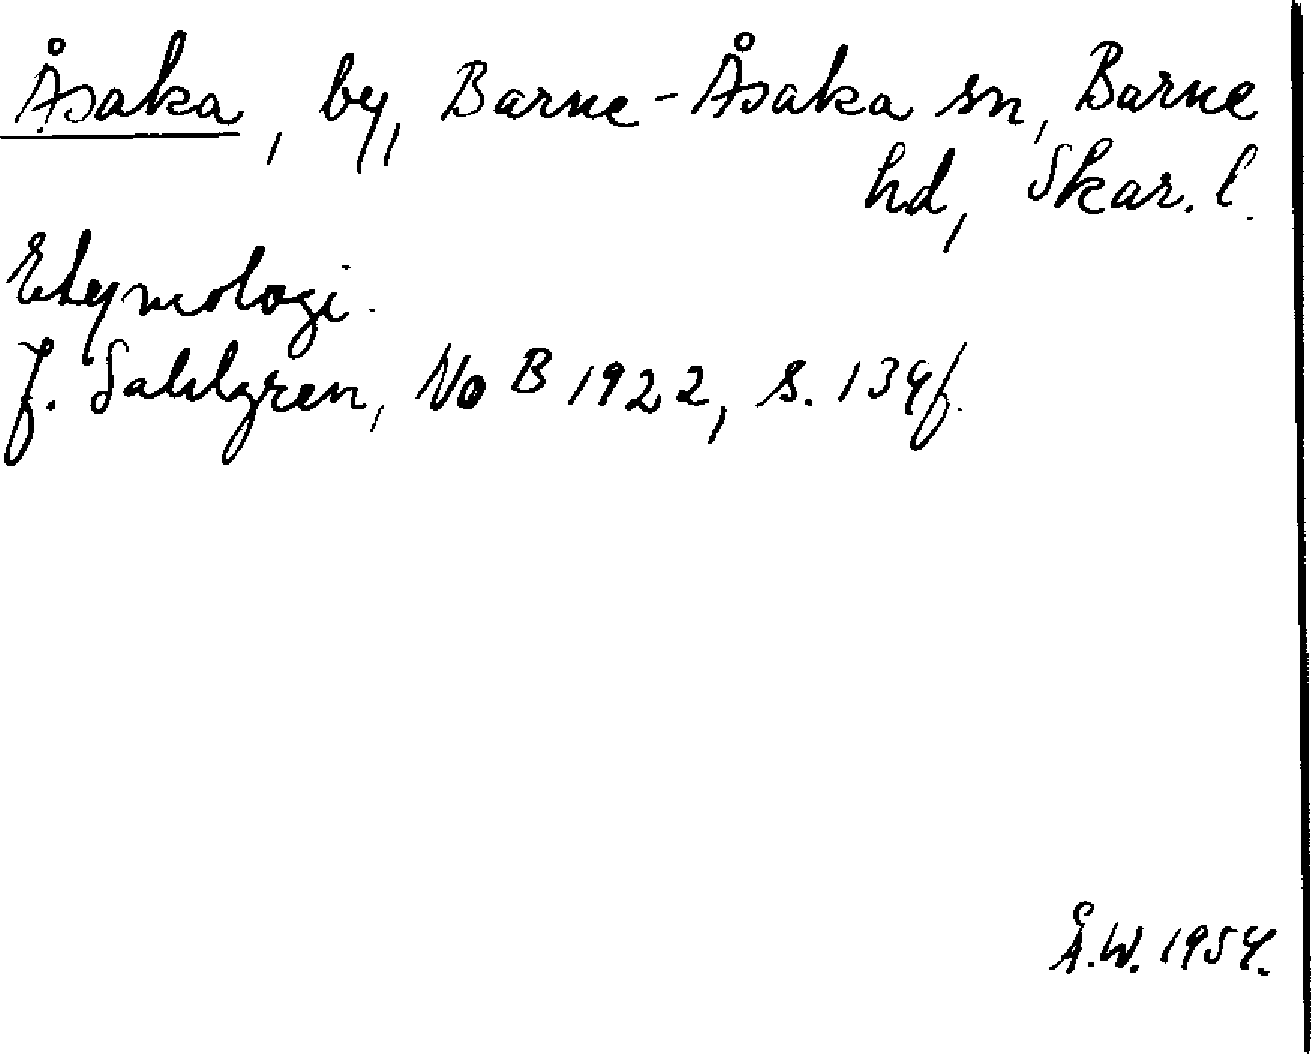 Åsaka, by, Barne-Åsaka sn, Barne
hd, Skar. l.
Etymologi.
J. Sahlgren, NoB 1922, s. 134f.
Å.W. 1954.